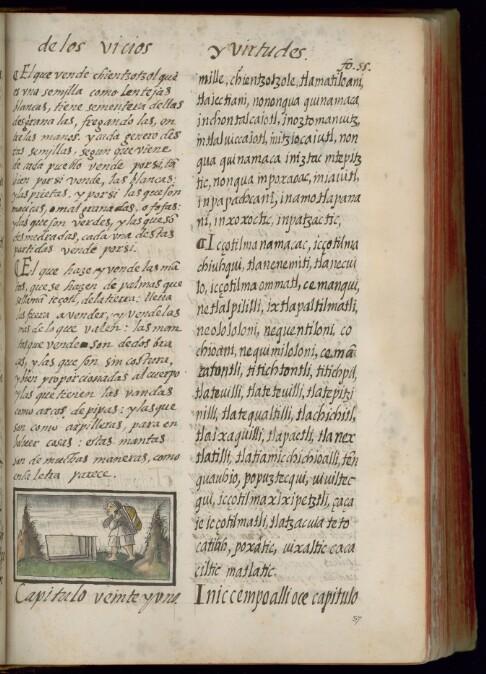 de los vicios
y virtudes.
fo. 55.
El que vende chientzotzol que
es vna semilla como lentejas
blancas, tiene sementera dellas
desgrana las, fregando las, en
tre las manos. y cada genero des
tas semillas, segun que viene
de cada pueblo vende por si, tã
bien por si vende, las blancas:
y las prietas, y por si las que son
macicas, o mal granadas, o fofas:
y las que son verdes, y las que sõ
desmedradas, cada vna destas
partidas vende por si.
El que haze y vende las mã
tas, que se hazen de palmas que
se llamã iccotl, de la tierra: lleua
las fuera a vender, y vende las
mas de lo que valen: las man
tas que vende son de dos bra
ças, y las que son sin costura,
y bien proporcionadas al cuerpo
y las que tienen las vandas
como arcos, de pipas: y las que
son como arpilleras, para en
boluer cosas: estas mantas
son de muchas maneras, como
en la letra parece.
Capitulo veinte y vno.
mille, chientzotzole, tlamatiloani,
tlaiectiani, nononqua quinamaca
in chontalcaiotl, inoztomanuitz,
intlaluiccaiotl, mitziocaiutl, non
qua quinamaca intiztac intepitz
tic, nonqua in poxacac, iniaiuitl,
in papadocani, in amo tlapana
ni, in xoxoctic, in patzactic,
Icçotilmanamacac, icçotilma
chiuhqui, tlanenemiti, tlanecui
lo, icçotilma ommatl, ce manqui,
netlalpililli, ixtlapaltilmatli,
neolololoni, nequentiloni, co
chioani, nequimiloloni, ce mã
tatontli, titichtontli, titichpil,
tlateuilli, tlateteuilli, tlatepitzi
pilli, tlatequaltilli, tlachichitl,
tlaixaquilli, tlapactli, tlanex
tlatilli, tlatlamicchichioalli, ten
quauhio, popuztecqui, uiuiltec
qui, icçotilmaxixipetztli, çaça
ie icçotilmatli, tlatzacuia teto
catiuh, poxatic, uixaltic caca
ciltic matlatic.
Inic cempoalli oce capitulo
57